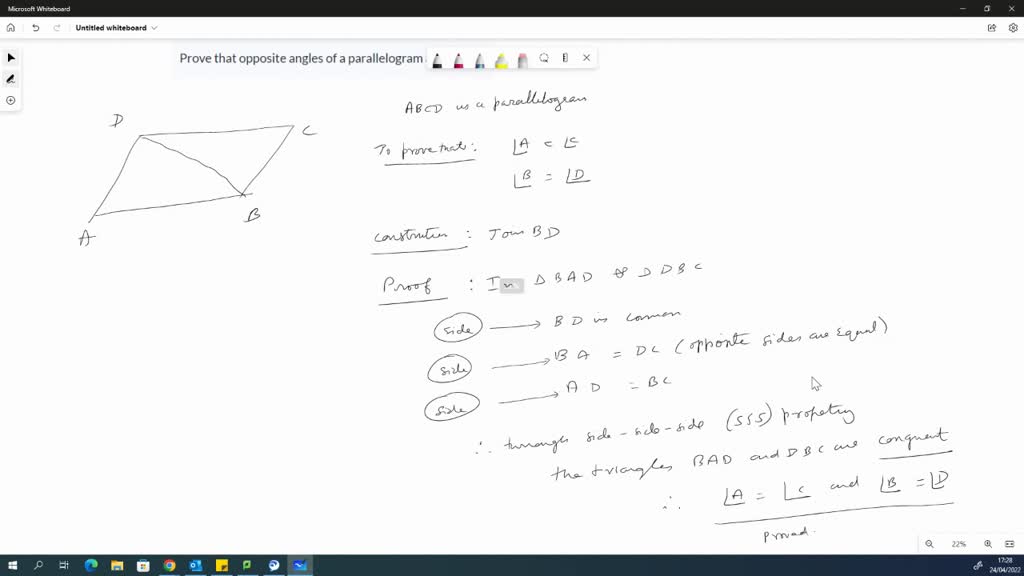 Microsoft Whiteboard
Untitled whiteboard
Prove that opposite angles of a parallelogram
ABCD is a parallelogram
D
C
A
B
To prove that: ∠A = ∠C
∠B = ∠D
Construction : Join BD
Proof : In Δ BAD & Δ DBC
side → BD is common
side → BA = DC (opposite sides are equal)
side → AD = BC
∴ through side-side-side (SSS) propetry
the triangles BAD and DBC are congruent
∴ ∠A = ∠C and ∠B = ∠D
proved.
22%
17:28
24/04/2022